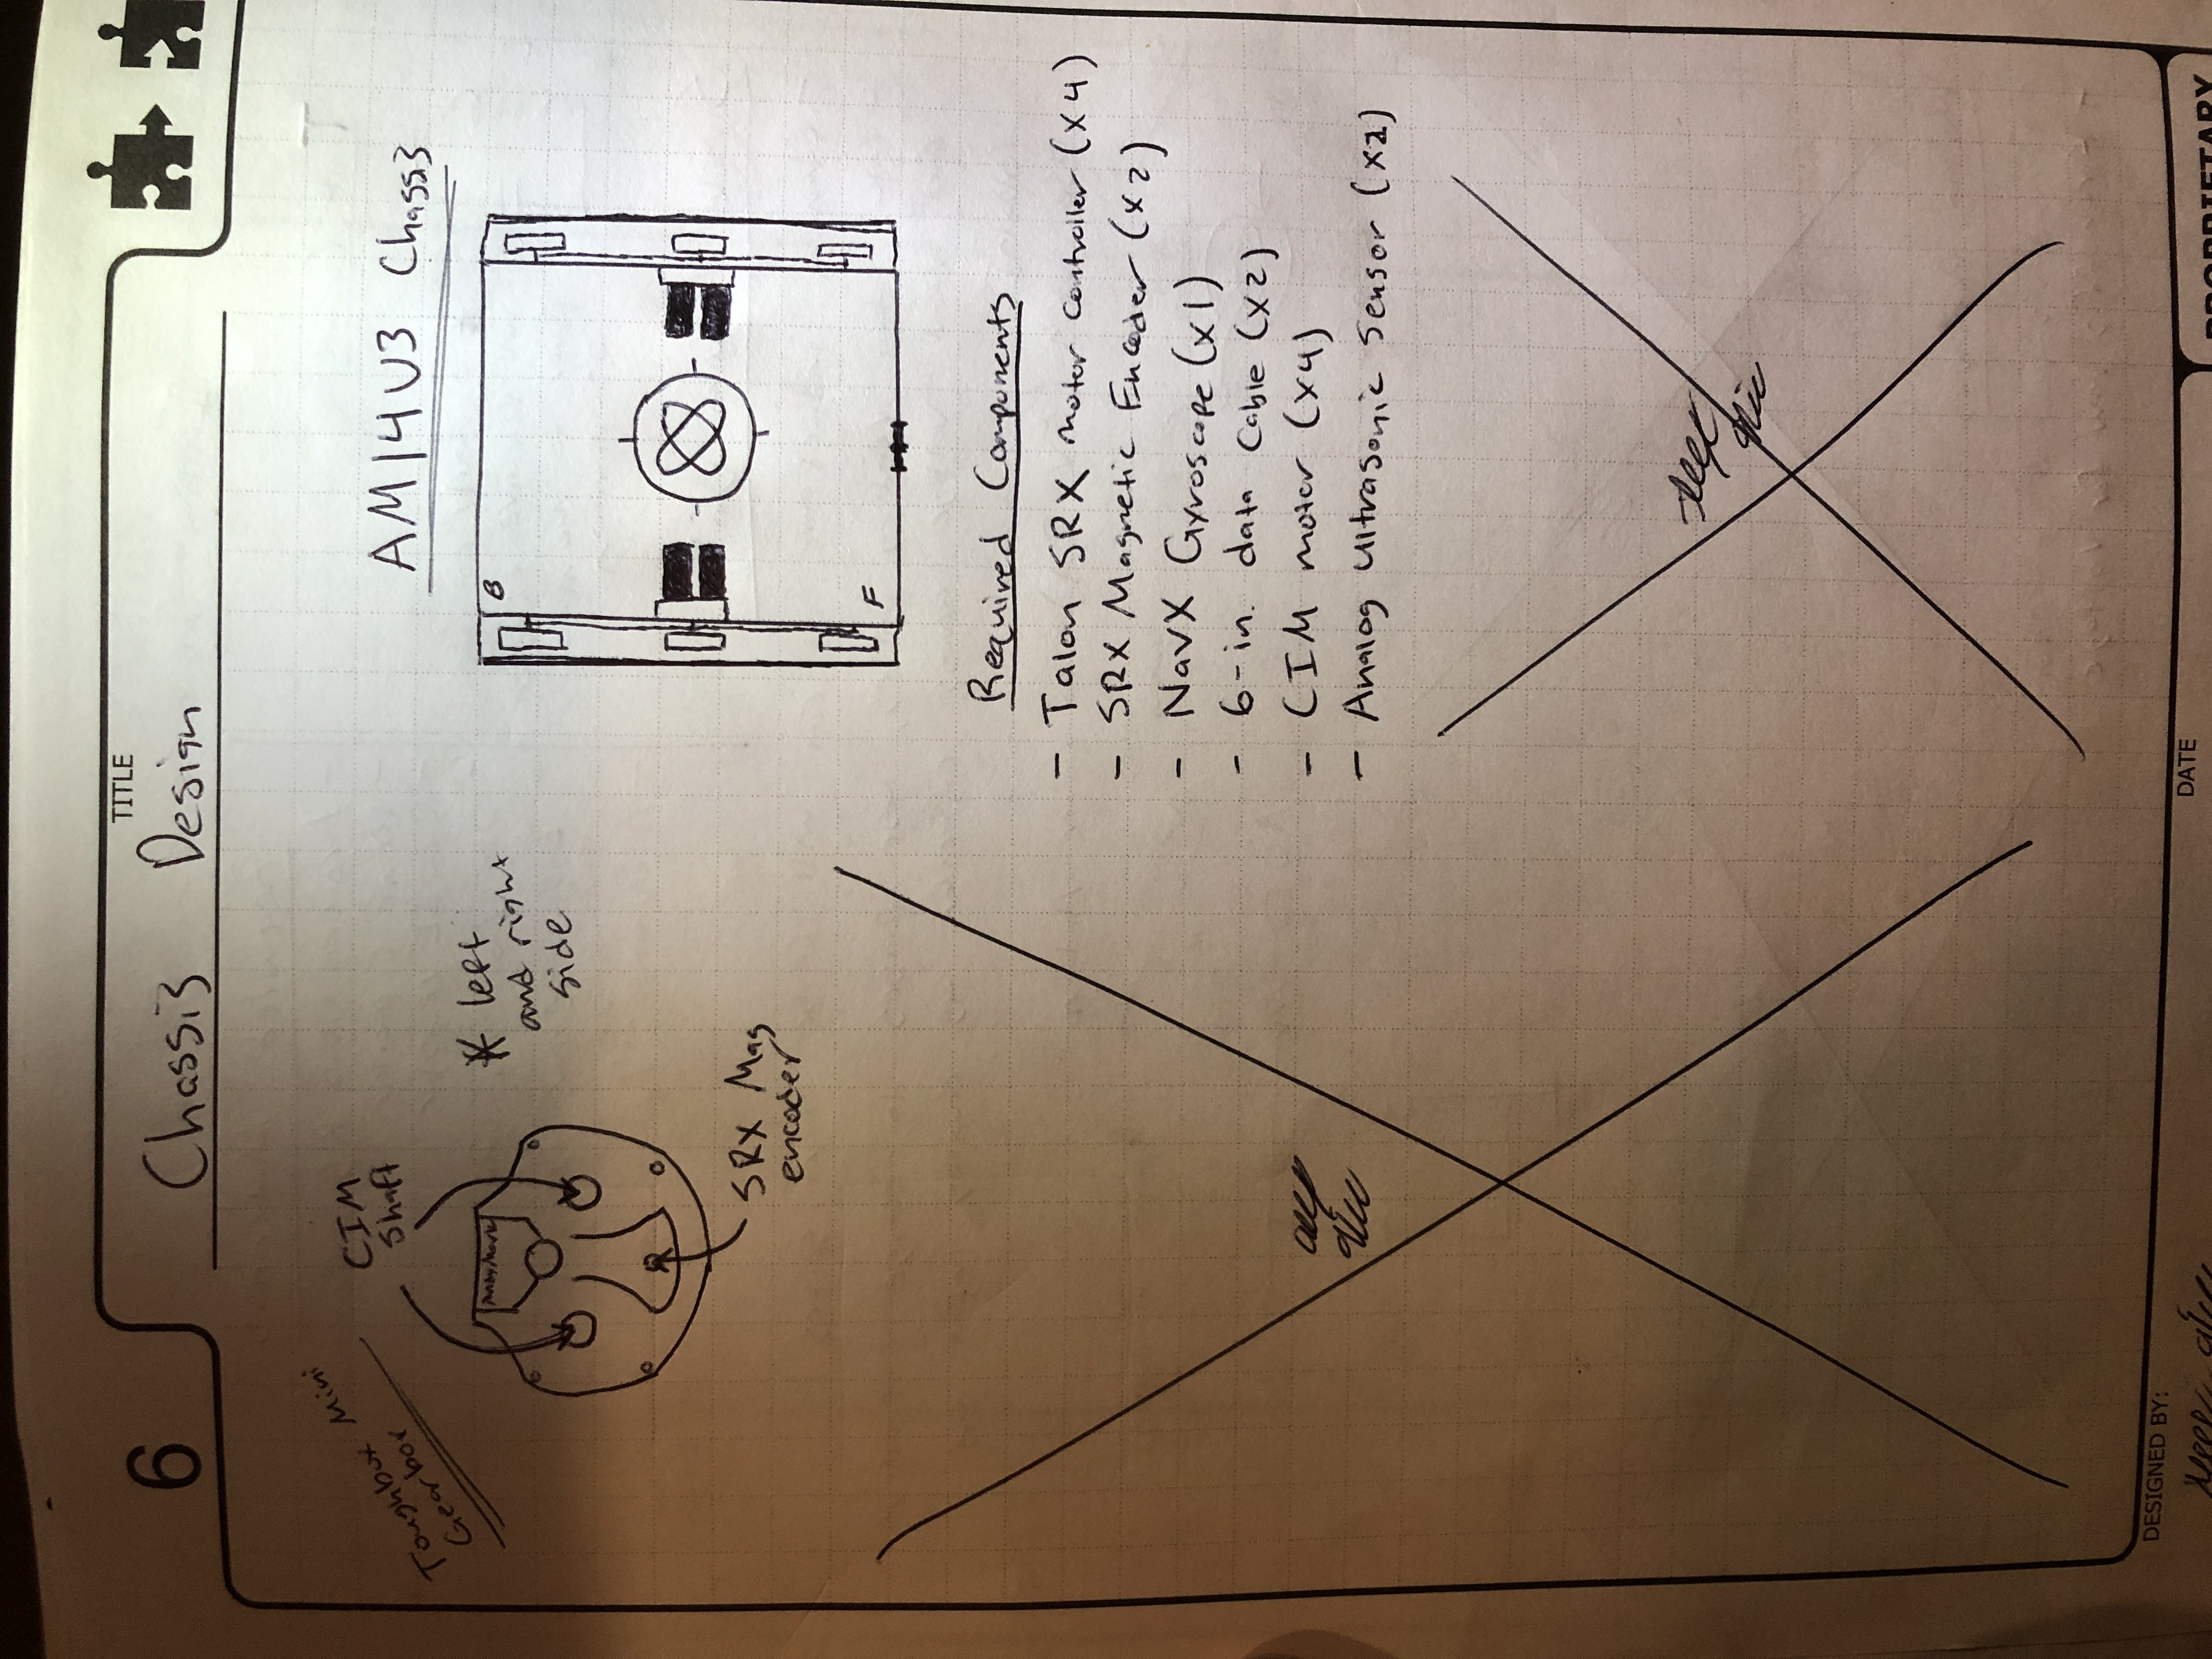 6
TITLE
Chassis Design
Toughbox Mini
Gearbox
CIM
Shaft
* left
and right
side
SRX Mag
encoder
AM14U3 Chassis
B
F
Required Components
- Talon SRX motor controller (x4)
- SRX Magnetic Encoder (x2)
- NavX Gyroscope (x1)
- 6-in. data cable (x2)
- CIM motor (x4)
- Analog Ultrasonic Sensor
DESIGNED BY:
DATE
PROPRIETARY